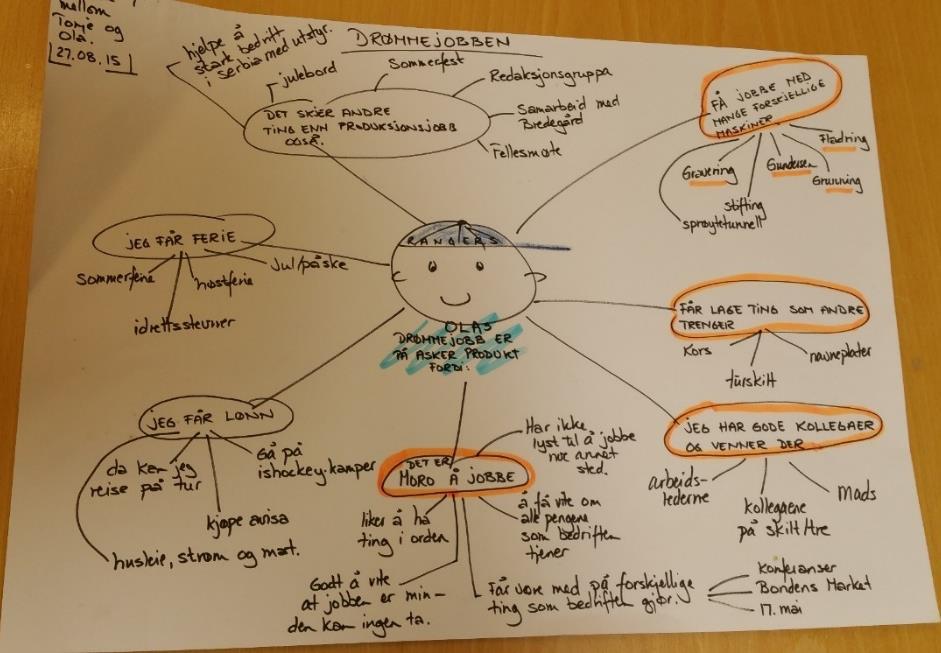 mellom
Tonje og
Ola.
27.08.15
DRØMMEJOBBEN
hjelpe å
stark bedrift
i serbia med utstyr.
julebord
Sommerfest
Redaksjonsgruppa
Samarbeid med
Bredegård
Fellesmøte
DET SKJER ANDRE
TING ENN PRODUKSJONSJOBB
OGSÅ.
FÅ JOBBE MED
MANGE FORSKJELLIGE
MASKINER
Gravering
stifting
sprøytetunnell
Gundersen
Grunning
Fladring
JEG FÅR FERIE
Sommerferie
høstferie
Jul/påske
idrettsstevner
RANGERS
OLAS
DRØMMEJOBB ER
PÅ ASKER PRODUKT
FORDI:
FÅR LAGE TING SOM ANDRE
TRENGER
Kors
turskilt
navneplater
JEG FÅR LØNN
da kan jeg
reise på tur
Gå på
ishockey-kamper
kjøpe avisa
husleie, strøm og mat.
DET ER
MORO Å JOBBE
Har ikke
lyst til å jobbe
noe annet
sted.
liker å ha
ting i orden
å få vite om
alle pengene
som bedriften
tjener
Godt å vite
at jobben er min –
den kan ingen ta.
Får være med på forskjellige
ting som bedriften gjør.
Konferanser
Bondens Market
17. mai
JEG HAR GODE KOLLEGAER
OG VENNER DER
arbeids-
lederne
kollegaene
på skilt/tre
Mads